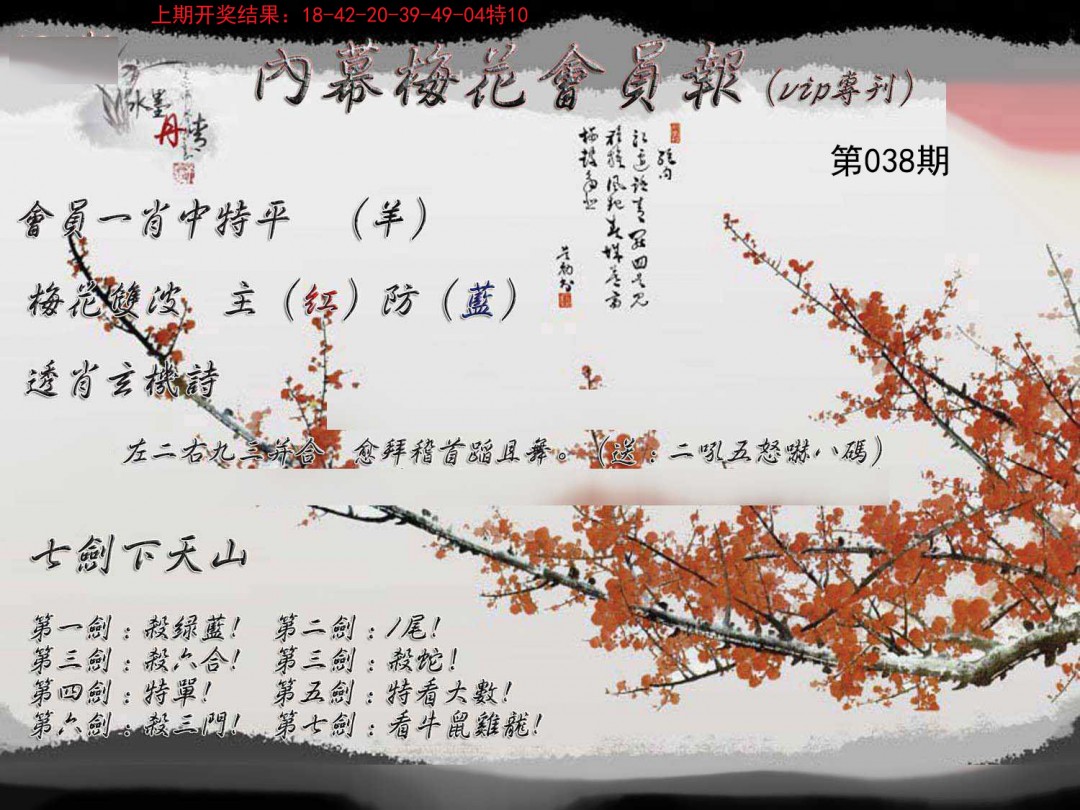 上期开奖结果：18-42-20-39-49-04特10
內幕梅花會員報（vip專刊）
水墨
丹青
第038期
會員一肖中特平　（羊）
梅花雙波　主（红）防（藍）
透肖玄機詩
左二右九三并合　愈拜稽首蹈且舞。（送：二吼五怒嚇八碼）
七劍下天山
第一劍：殺绿藍！　第二劍：1尾！
第三劍：殺六合！　第三劍：殺蛇！
第四劍：特單！　第五劍：特看大數！
第六劍：殺三門！　第七劍：看牛鼠雞龍！